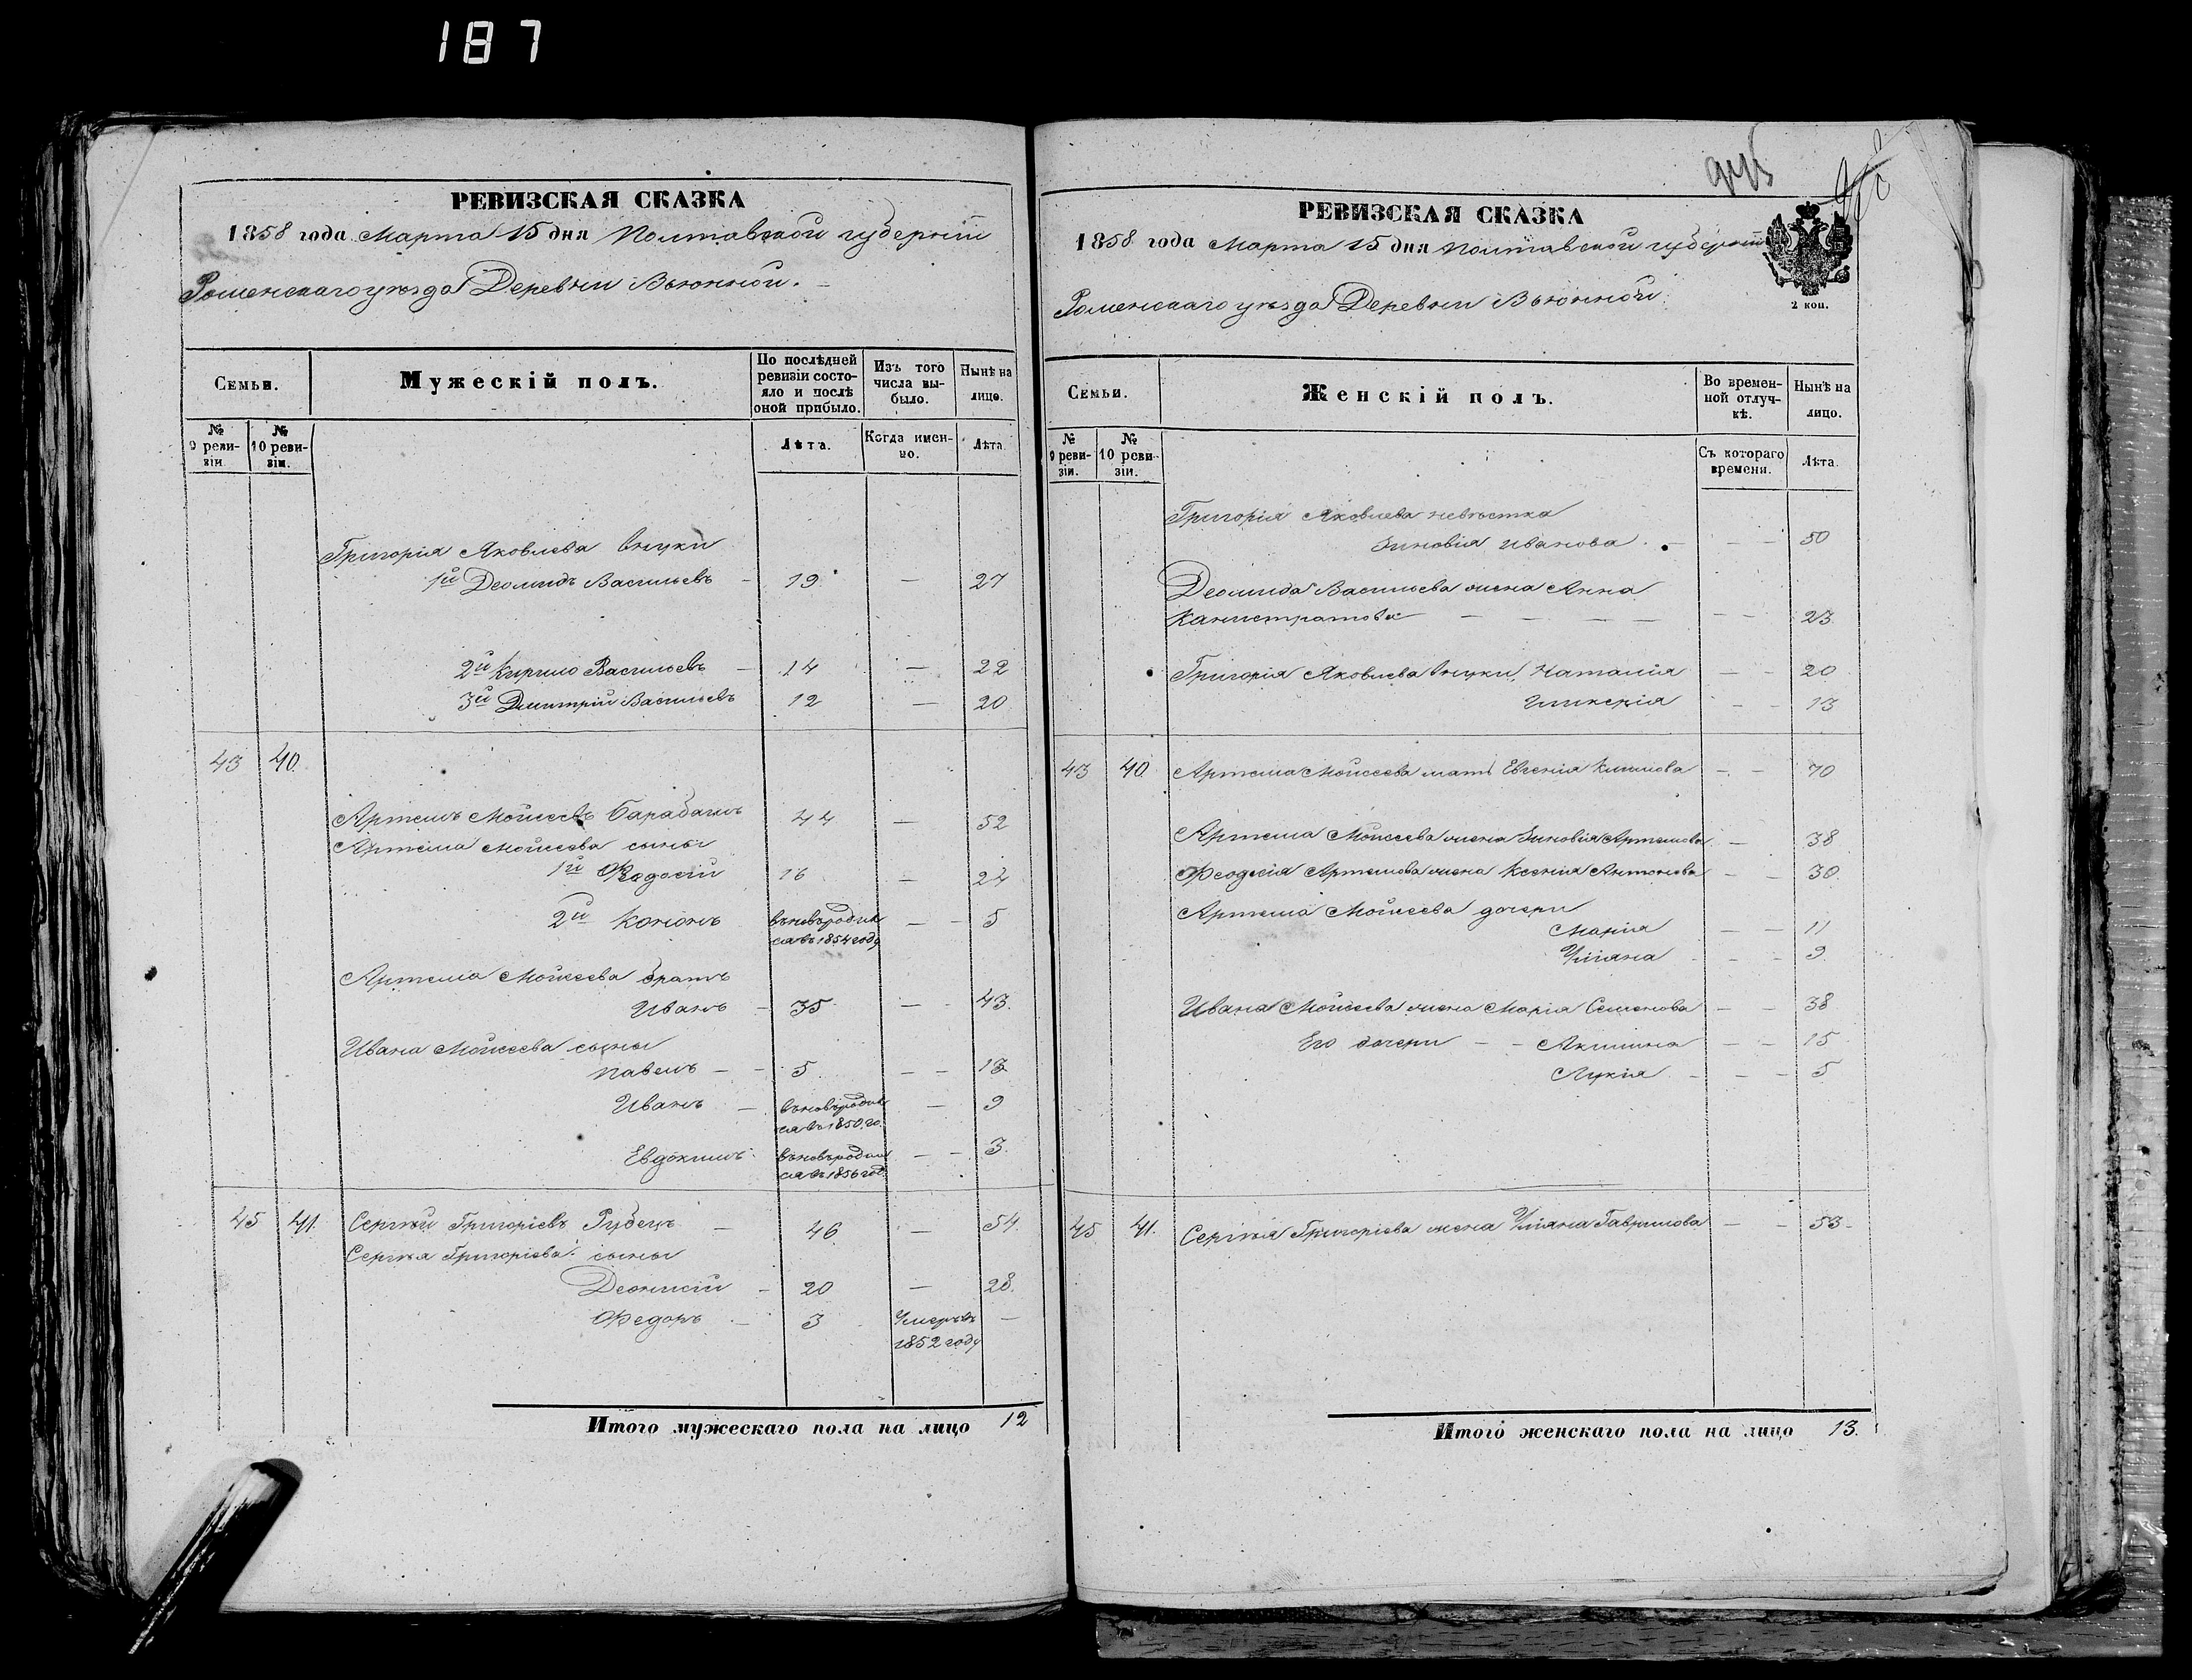 187
РЕВИЗСКАЯ СКАЗКА
1858 года Марта 15 дня Полтавской губернiи
Роменскаго уѣзда Деревни Вьюнной.
Семьи.
Мужескій полъ.
По послѣдней ревизіи состояло и послѣ оной прибыло.
Изъ того числа выбыло.
Нынѣ на лицо.
№ 9 ревизіи
№ 10 ревизіи.
Лѣта.
Когда именно.
Лѣта
Григорія Яковлева внуки
1й Деомидъ Васильевъ - 19 — 27
2й Кирило Васильевъ - 14 — 22
3й Дмитрій Васильевъ 12 — 20
43 40.
Артемъ Мойсеевъ Барабашъ 44 — 52
Артема Мойсеева сыны
1й Федосій 16 — 24
2й Кононъ вновьродил — 5
ся въ 1854 году
Артема Мойсеева братъ
Иванъ - 35 — 43.
Ивана Мойсеева сыны
Павелъ - 5. — 13
Иванъ - вновьродил — 9
ся въ 1850 го.
Евдокимъ вновьродил — 3.
ся въ 1856 год
45 41. Сергѣй Григоріевъ Рубецъ - 46 — 54.
Сергѣя Григоріева сыны
Деонисій - 20 — 28.
Федоръ - 3 Умеръ въ —
1852 году
Итого мужескаго пола на лицо 12
РЕВИЗСКАЯ СКАЗКА
1858 года Марта 15 дня Полтавской губернiи
Роменскаго уѣзда Деревни Вьюнной
2 коп.
Семьи.
Женскій полъ.
Во временной отлучкѣ.
Нынѣ на лицо.
№ 9 ревизіи.
№ 10 ревизіи.
Съ котораго времени.
Лѣта.
Григорія Яковлева невѣстка
Зиновія Иванова. — 50
Деомида Васильева жена Анна
Калистратова — — 23.
Григорія Яковлева внуки Наталія — 20
Гликерія — 13
43 40. Артема Мойсеева мать Евгенія Климова — 70
Артема Мойсеева жена Зиновія Артемова — 38
Феодосія Артемова жена Ксенія Антонова — 30.
Артема Мойсеева дочери
Марія — 11
Уліяна — 9.
Ивана Мойсеева жена Марія Семенова — 38
Его дочери - - Акилина — 15
Лукія — 5
45 41. Сергѣя Григоріева жена Уліяна Гаврилова — 53-
Итого женскаго пола на лицо 13.